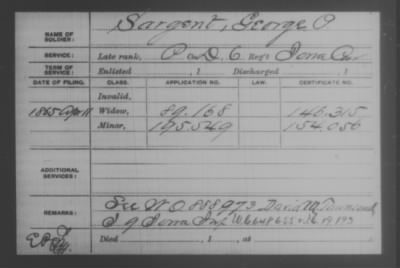 NAME OF SOLDIER: Sargent, George O
SERVICE: Late rank, P Co. D, 6 Reg't Iowa Cav
TERM OF SERVICE: Enlisted , 1 Discharged , 1
DATE OF FILING. CLASS. APPLICATION NO. LAW. CERTIFICATE NO.
Invalid,
1865 Apr 11 Widow, 89.168 146.315
Minor, 195.549 154.056
ADDITIONAL SERVICES:
REMARKS: See W O 888973 David M
I 9 Iowa Inf
Died , 1 , at